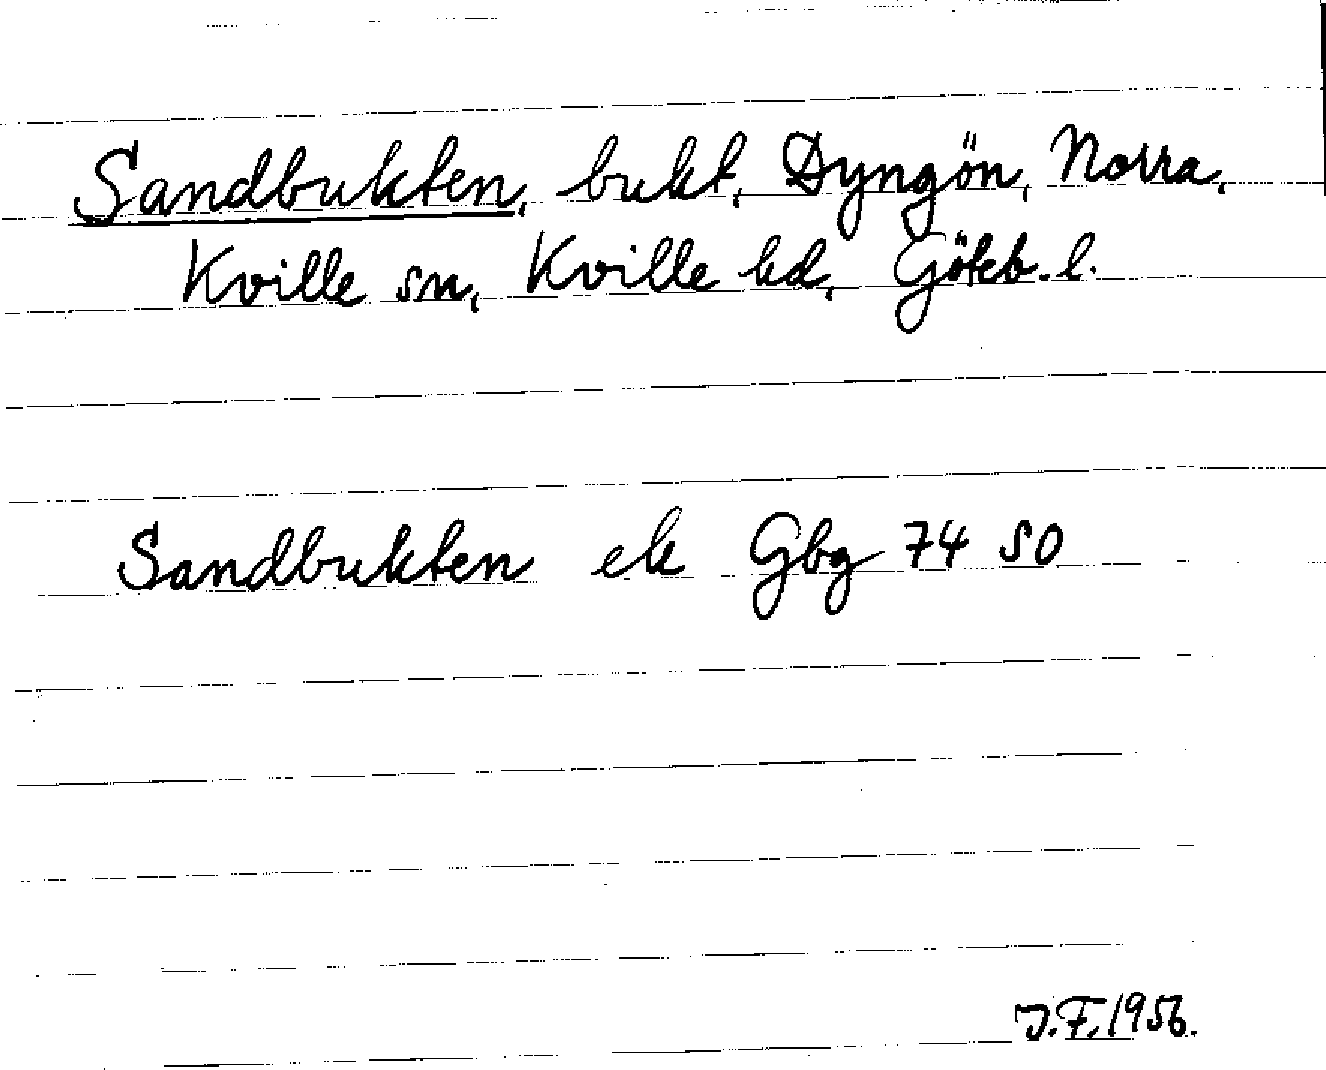 Sandbukten, bukt, Dyngön, Norra,
Kville sn, Kville hd, Göteb. l.
Sandbukten ek Gbg 74 SO
J.F. 1956.